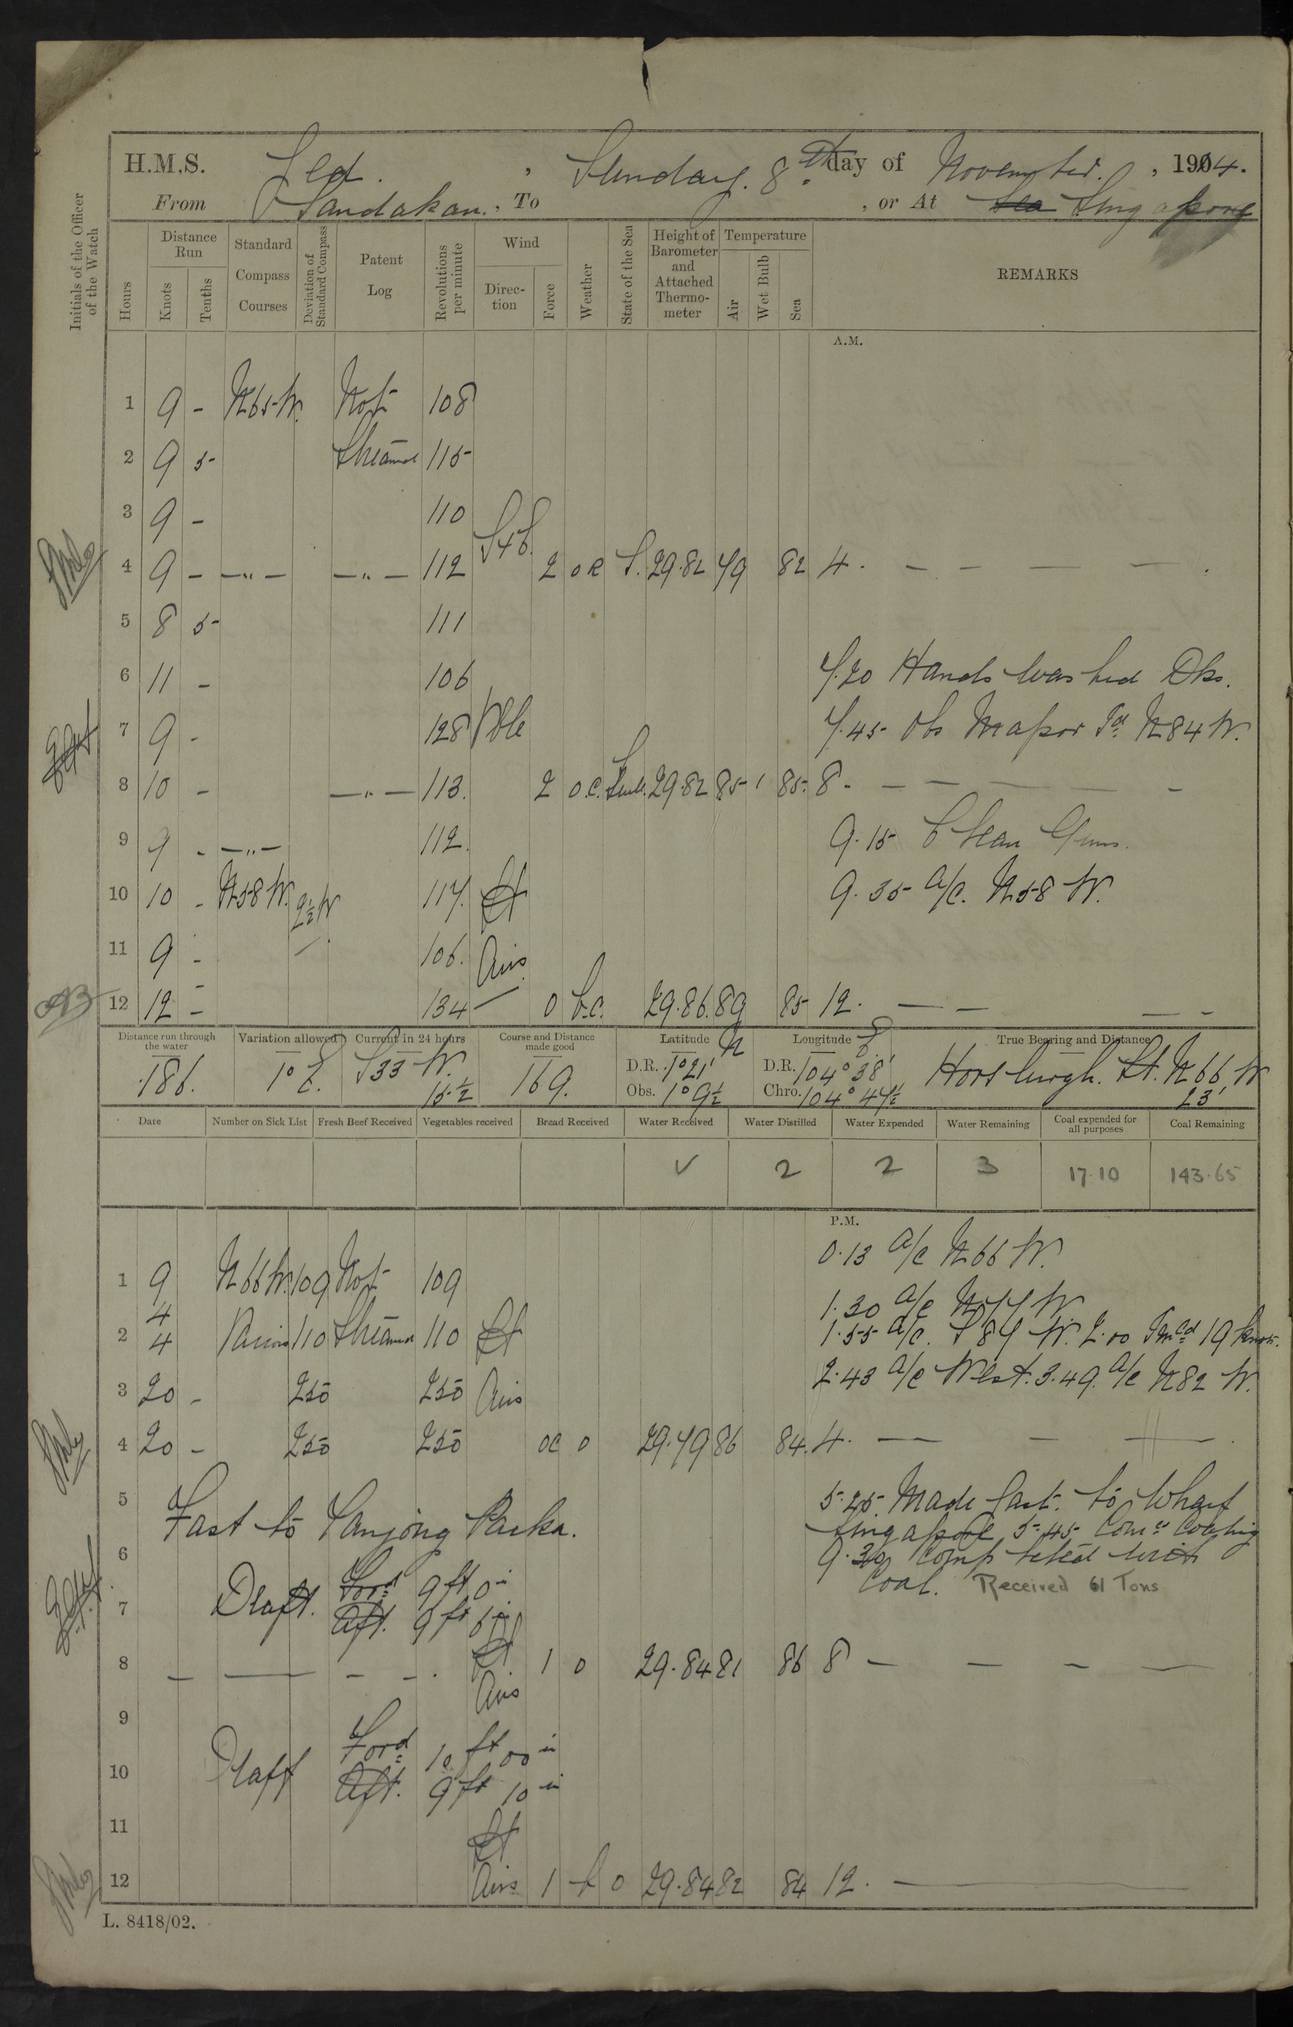 H.M.S. Jed. , Sunday. 8th day of November. , 1914.
From Sandakan. , To , or At Sea Singapore
Initials of the Officer of the Watch
Hours
Distance Run
Knots
Tenths
Standard Compass Courses
Deviation of Standard Compass
Patent Log
Revolutions per minute
Wind
Direction
Force
Weather
State of the Sea
Height of Barometer and Attached Thermometer
Temperature
Air
Wet Bulb
Sea
REMARKS
A.M.
1 9 - N65W. Not 108
2 9 5 Streamed 115
3 9 - 110
4 9 - -"- -"- 112 2 o R S. 29.82 79 82 4.
5 8 5 111
6 11 - 106 7.20 Hands washed Dks.
7 9 - 128 Vble 7.45 Obs Mapor Id N84W.
8 10 - -"- 113. 2 o.c. 29.82 85 85. 8.
9 9 - -"- 112. 9.15 Clean Guns.
10 10 - N58W. 2½W 117. Lt 9.35 a/c. N58W.
11 9 - 106. Airs
12 12 - 134 - 0 b.c. 29.86. 89 85 12.
Distance run through the water 186.
Variation allowed 1° E.
Current in 24 hours S33W. 15½
Course and Distance made good 169.
Latitude N D.R. 1°21' Obs. 1°9½
Longitude E D.R. 104°38' Chro. 104°44½
True Bearing and Distance Horsburgh. Lt. N66W 23'
Date
Number on Sick List
Fresh Beef Received
Vegetables received
Bread Received
Water Received ✓
Water Distilled 2
Water Expended 2
Water Remaining 3
Coal expended for all purposes 17.10
Coal Remaining 143.65
P.M.
0.13 a/c N66W.
1 9 N66W. 109 Not 109
1.30 a/c N W
2 4 4 Various 110 Streamed 110 Lt 1.55 a/c. S 89 W. 2.00 19 knots.
3 20 - 250 250 Airs 2.43 a/c West. 3.49. a/c N82 W.
4 20 - 250 250 oc o 29.79 86 84. 4.
5 5.25. Made fast. to Wharf
Fast to Tanjong Parka. Singapore 5.45 Comcd Coaling
6 9.30 completed with
Coal. Received 61 Tons
7 Draft. Ford 9 ft 0 in
Aft. 9 ft 6 in
8 Lt Airs 1 o 29.84 81 86 8
9
10 Draft Ford 10 ft 00 in
Aft. 9 ft 10 in
11 Lt
12 Airs 1 b 0 29.84 82 84 12.
L. 8418/02.